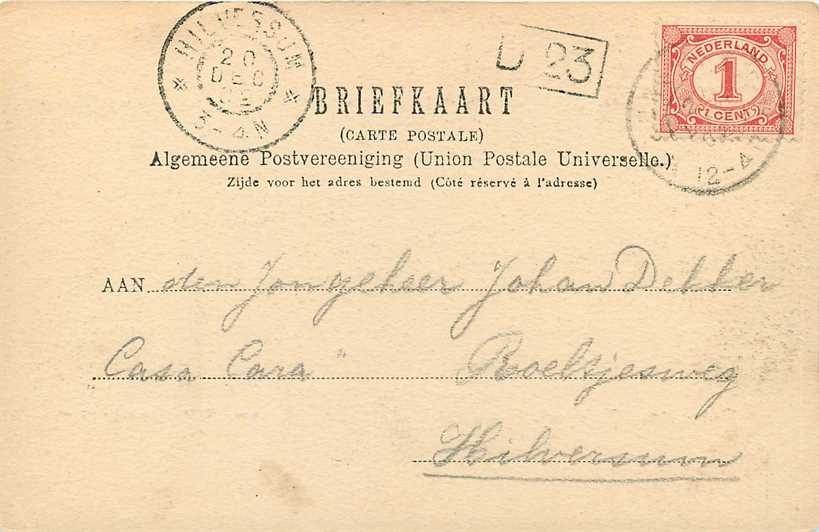 HILVERSUM
20
DEC
3-4N
D 23
NEDERLAND
1
(1 CENT)
12-4
BRIEFKAART
(CARTE POSTALE)
Algemeene Postvereeniging (Union Postale Universelle.)
Zijde voor het adres bestemd (Côté réservé à l'adresse)
AAN den Jongeheer Johan Dekker
Casa Cara" Roeltjesweg
Hilversum